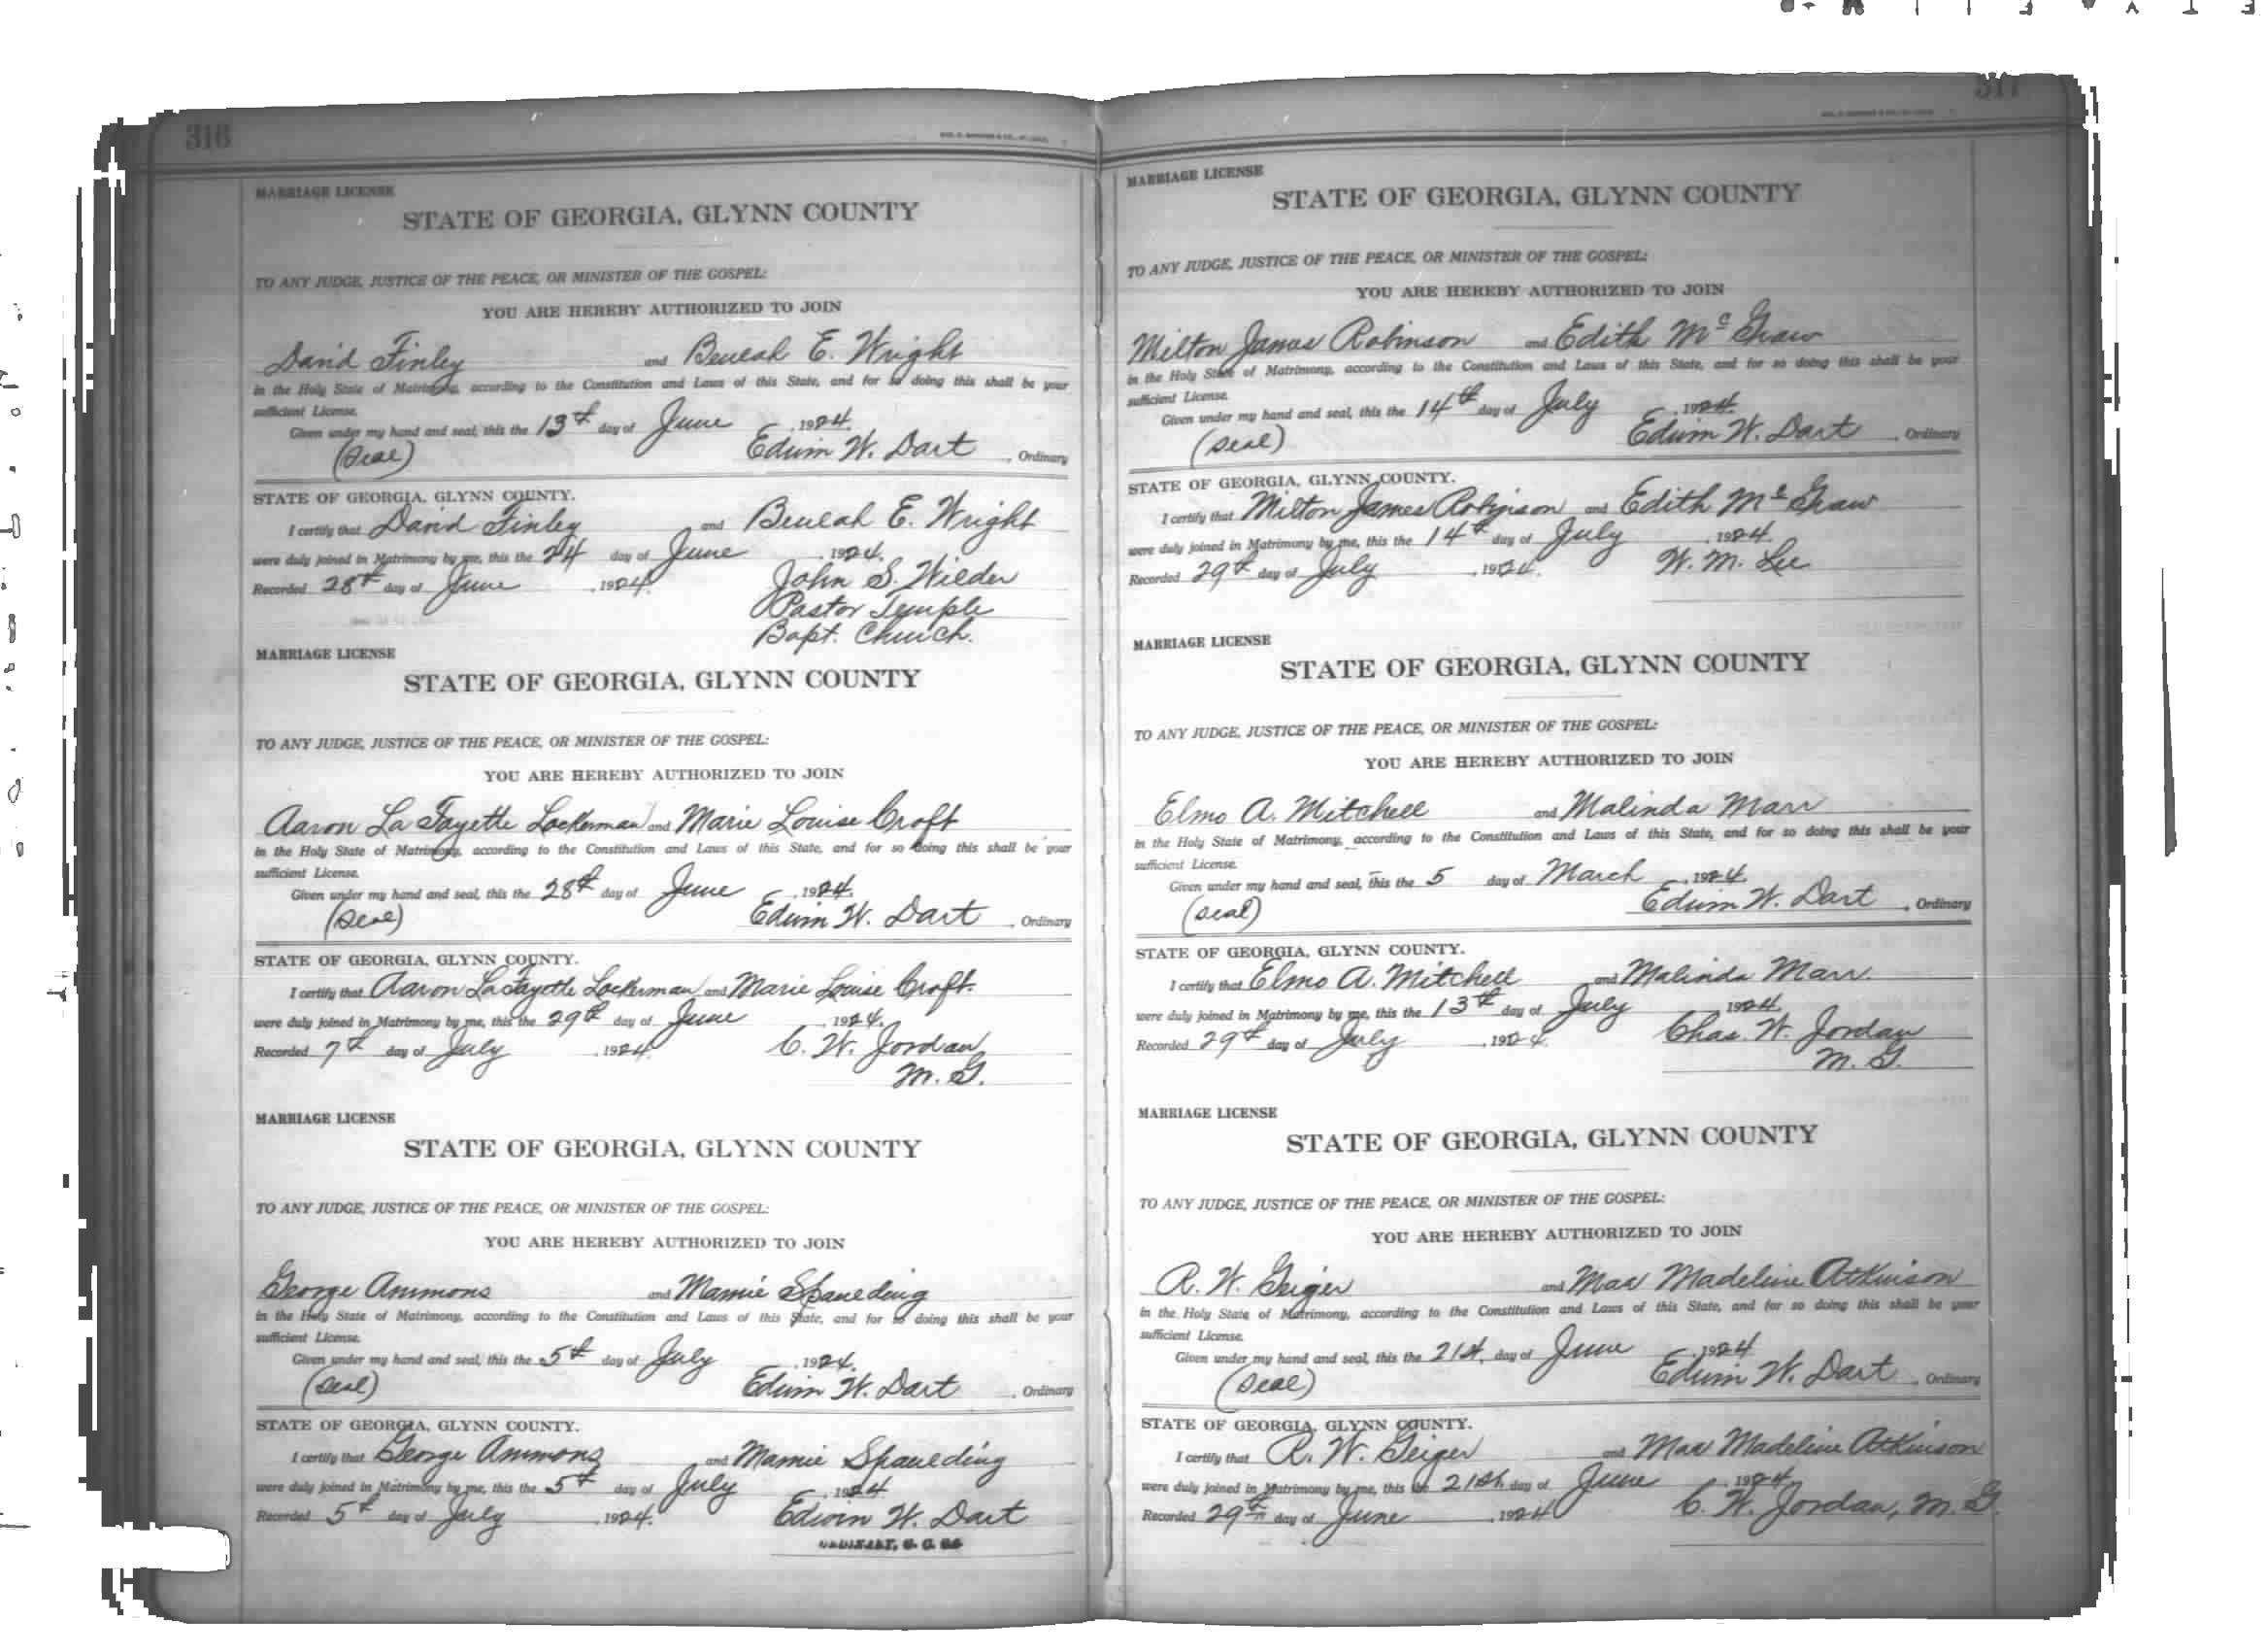 316
MARRIAGE LICENSE
STATE OF GEORGIA, GLYNN COUNTY
TO ANY JUDGE, JUSTICE OF THE PEACE, OR MINISTER OF THE GOSPEL:
YOU ARE HEREBY AUTHORIZED TO JOIN
David Finley and Beulah E. Wright
in the Holy State of Matrimony, according to the Constitution and Laws of this State, and for so doing this shall be your
sufficient License.
Given under my hand and seal, this the 13th day of June, 1924.
(Seal) Edwin W. Dart, Ordinary
STATE OF GEORGIA, GLYNN COUNTY.
I certify that David Finley and Beulah E. Wright
were duly joined in Matrimony by me, this the 24 day of June, 1924.
Recorded 28th day of June, 1924. John S. Wilder
Pastor Temple
Bapt. Church.
MARRIAGE LICENSE
STATE OF GEORGIA, GLYNN COUNTY
TO ANY JUDGE, JUSTICE OF THE PEACE, OR MINISTER OF THE GOSPEL:
YOU ARE HEREBY AUTHORIZED TO JOIN
Aaron La Fayette Lockerman and Marie Louise Croft
in the Holy State of Matrimony, according to the Constitution and Laws of this State, and for so doing this shall be your
sufficient License.
Given under my hand and seal, this the 28th day of June, 1924.
(Seal) Edwin W. Dart, Ordinary
STATE OF GEORGIA, GLYNN COUNTY.
I certify that Aaron LaFayette Lockerman and Marie Louise Croft.
were duly joined in Matrimony by me, this the 29th day of June, 1924.
Recorded 7th day of July, 1924. C. W. Jordan
M. G.
MARRIAGE LICENSE
STATE OF GEORGIA, GLYNN COUNTY
TO ANY JUDGE, JUSTICE OF THE PEACE, OR MINISTER OF THE GOSPEL:
YOU ARE HEREBY AUTHORIZED TO JOIN
George Ammons and Mamie Spaulding
in the Holy State of Matrimony, according to the Constitution and Laws of this State, and for so doing this shall be your
sufficient License.
Given under my hand and seal, this the 5th day of July, 1924.
(Seal) Edwin W. Dart, Ordinary
STATE OF GEORGIA, GLYNN COUNTY.
I certify that George Ammons and Mamie Spaulding
were duly joined in Matrimony by me, this the 5th day of July, 1924
Recorded 5th day of July, 1924. Edwin W. Dart
ORDINARY, G. C. GA
317
MARRIAGE LICENSE
STATE OF GEORGIA, GLYNN COUNTY
TO ANY JUDGE, JUSTICE OF THE PEACE, OR MINISTER OF THE GOSPEL:
YOU ARE HEREBY AUTHORIZED TO JOIN
Milton James Robinson and Edith McGraw
in the Holy State of Matrimony, according to the Constitution and Laws of this State, and for so doing this shall be your
sufficient License.
Given under my hand and seal, this the 14th day of July, 1924.
(Seal) Edwin W. Dart, Ordinary
STATE OF GEORGIA, GLYNN COUNTY.
I certify that Milton James Robinson and Edith McGraw
were duly joined in Matrimony by me, this the 14th day of July, 1924.
Recorded 29th day of July, 1924. W. M. Lee
MARRIAGE LICENSE
STATE OF GEORGIA, GLYNN COUNTY
TO ANY JUDGE, JUSTICE OF THE PEACE, OR MINISTER OF THE GOSPEL:
YOU ARE HEREBY AUTHORIZED TO JOIN
Elmo A. Mitchell and Malinda Marr
in the Holy State of Matrimony, according to the Constitution and Laws of this State, and for so doing this shall be your
sufficient License.
Given under my hand and seal, this the 5 day of March, 1924.
(Seal) Edwin W. Dart, Ordinary
STATE OF GEORGIA, GLYNN COUNTY.
I certify that Elmo A. Mitchell and Malinda Marr.
were duly joined in Matrimony by me, this the 13th day of July, 1924.
Recorded 29th day of July, 1924. Chas. W. Jordan
M. G.
MARRIAGE LICENSE
STATE OF GEORGIA, GLYNN COUNTY
TO ANY JUDGE, JUSTICE OF THE PEACE, OR MINISTER OF THE GOSPEL:
YOU ARE HEREBY AUTHORIZED TO JOIN
R. W. Geiger and Mae Madeline Atkinson
in the Holy State of Matrimony, according to the Constitution and Laws of this State, and for so doing this shall be your
sufficient License.
Given under my hand and seal, this the 21st, day of June, 1924
(Seal) Edwin W. Dart, Ordinary
STATE OF GEORGIA, GLYNN COUNTY.
I certify that R. W. Geiger and Mae Madeline Atkinson
were duly joined in Matrimony by me, this the 21st. day of June, 1924
Recorded 29th day of June, 1924 C. W. Jordan, M. G.